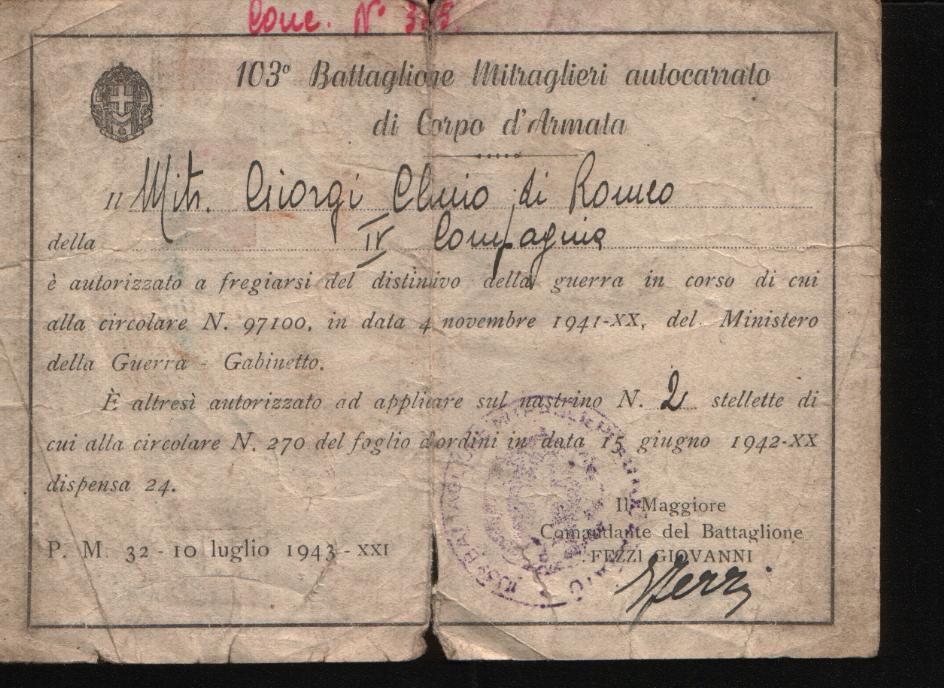 Conc. N°
103° Battaglione Mitraglieri autocarrato
di Corpo d'Armata
Il Mitr. Giorgi Clinio di Romeo
della IV Compagnia
è autorizzato a fregiarsi del distinivo della guerra in corso di cui
alla circolare N. 97100, in data 4 novembre 1941-XX, del Ministero
della Guerra - Gabinetto.
È altresì autorizzato ad applicare sul nastrino N. 2 stellette di
cui alla circolare N. 270 del foglio d'ordini in data 15 giugno 1942-XX
dispensa 24.
Il Maggiore
Comandante del Battaglione
FEZZI GIOVANNI
P. M. 32 - 10 luglio 1943 - XXI
Fezzi
103° BATTAGLIONE MITRAGLIERI